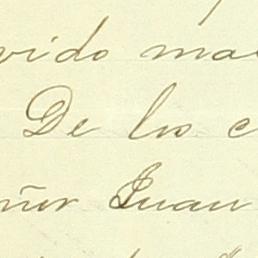 vido ma
De los c
ñor Juan